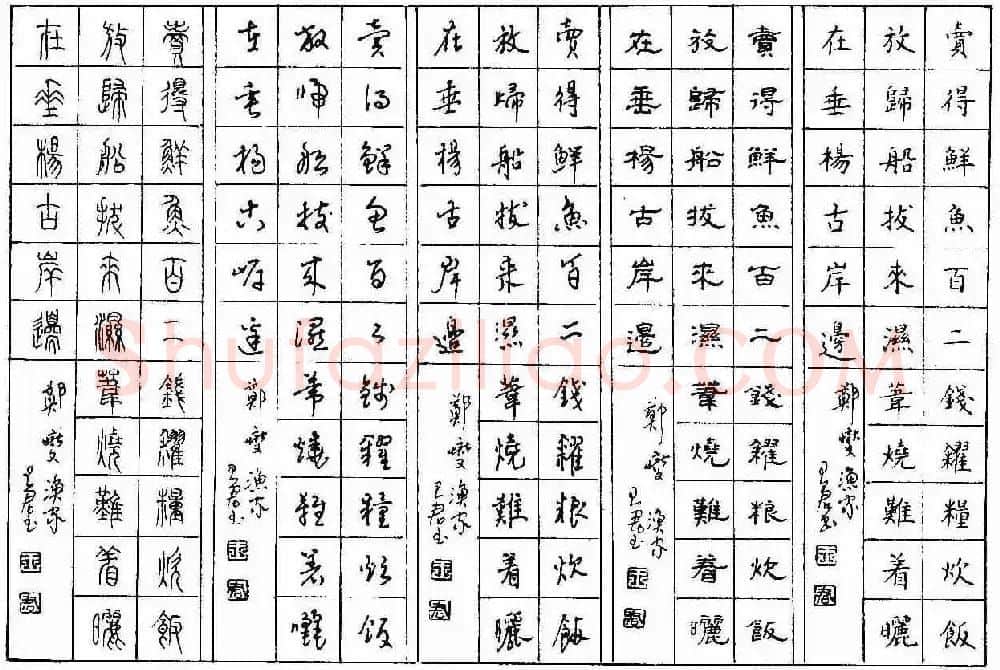 賣得鮮魚百二錢糴糧炊飯
放歸船拔來濕葦燒難着曬
在垂楊古岸邊
鄭燮漁家
賣得鮮魚百二錢糴粮炊飯
放歸船拔來濕葦燒難着曬
在垂楊古岸邊
鄭燮漁家
賣得鮮魚百二錢糴粮炊飯
放歸船拔來濕葦燒難着曬
在垂楊古岸邊
鄭燮漁家
賣得鮮魚百二錢糴糧炊飯
放歸船拔來濕葦燒難着曬
在垂楊古岸邊
鄭燮漁家
賣得鮮魚百二錢糴糧炊飯
放歸船拔來濕葦燒難着曬
在垂楊古岸邊
鄭燮漁家
Shufaziliao.COM